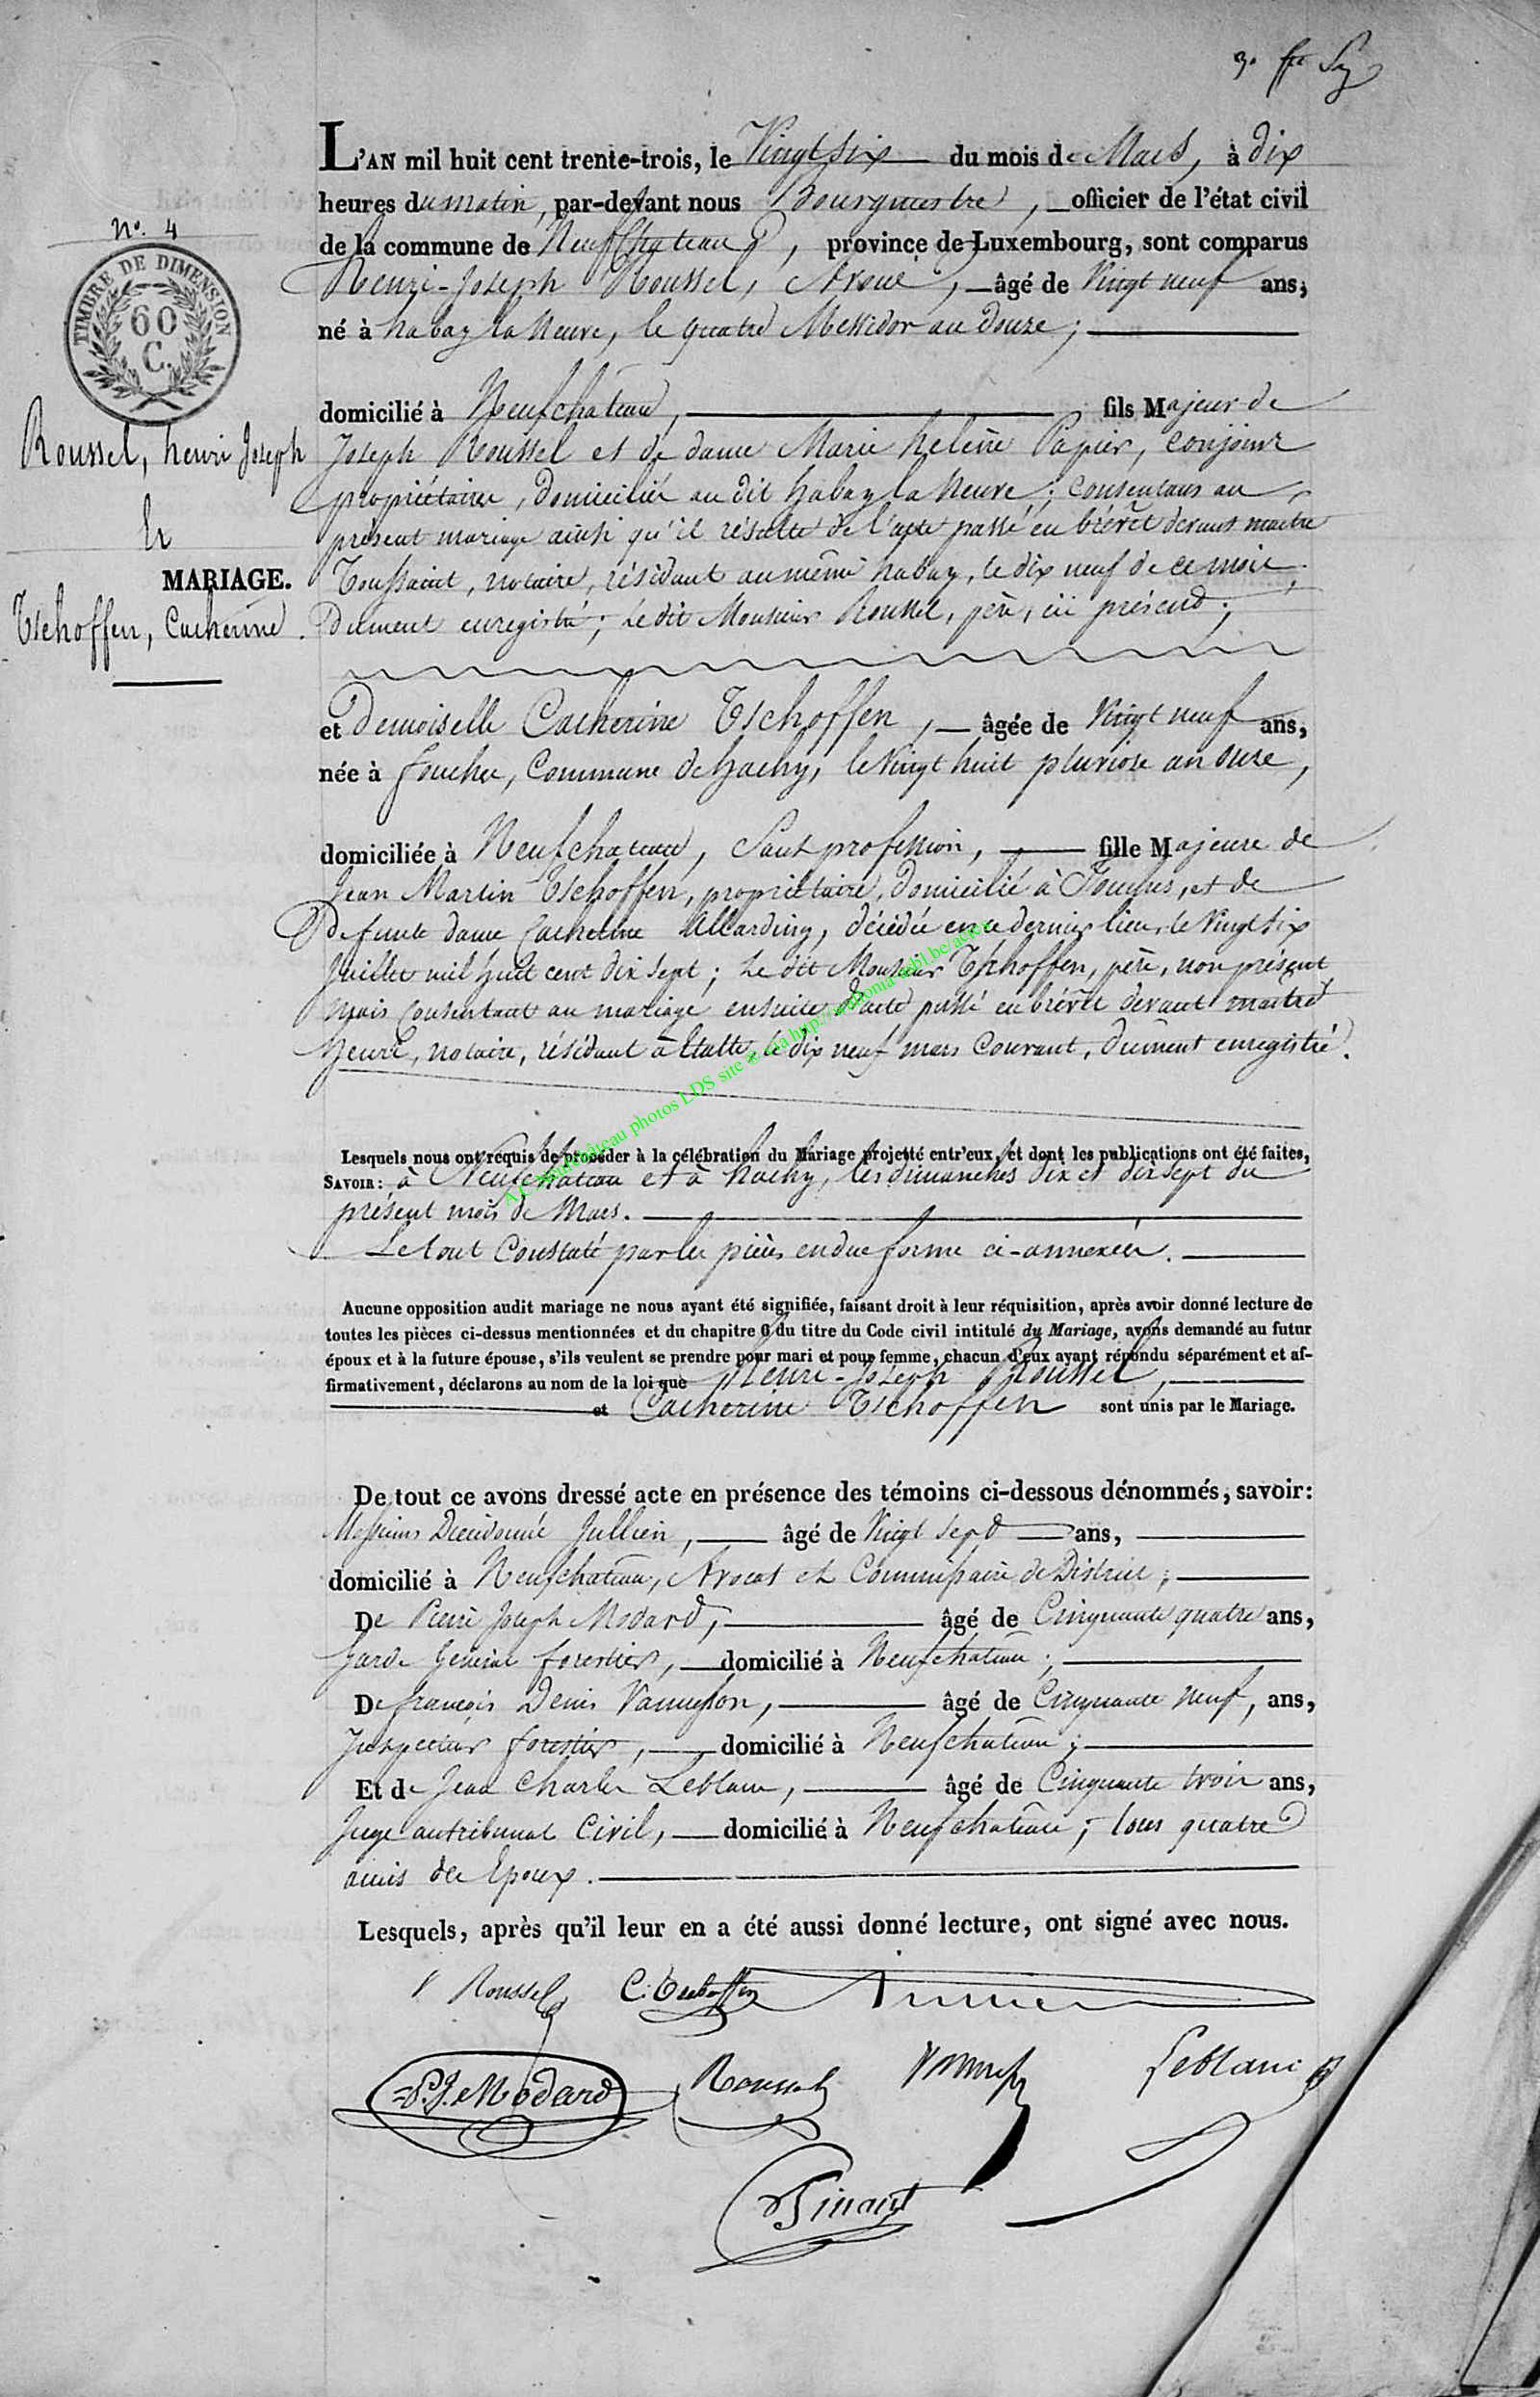 3.
L'AN mil huit cent trente-trois, le Vingt six du mois de Mars, à dix
heures du matin, par-devant nous Bourgmestre, officier de l'état civil
de la commune de Neufchateau, province de Luxembourg, sont comparus
Henri-Joseph Roussel, Avoué, âgé de Vingt neuf ans,
né à habay la Neuve, le quatre Messidor an douze;
domicilié à Neufchateau, fils Majeur de
Joseph Roussel et de dame Marie helène Papier, conjoins
propriétaires, domiciliés au dit habay la Neuve; consentans au
présent mariage ainsi qu'il résulte de l'acte passé en brévêt devant maitre
Toussaint, notaire, résidant au même habay, le dix neuf de ce mois
Dument enregistré; Le dit Monsieur Roussel, père, ici présent;
No. 4
TIMBRE DE DIMENSION
60
C.
Roussel, henri Joseph
Et
MARIAGE.
Tschoffen, Catherine.
et Demoiselle Catherine Tschoffen, âgée de Vingt neuf ans,
née à fouches, Commune de hachy, le Vingt huit pluviose an onze,
domiciliée à Neufchateau, Sans profession, fille Majeure de
Jean Martin Tschoffen, propriétaire, domicilié à Fouches, et de
Defunte dame Catherine Allarding, décédée en ce dernier lieu, le Vingt six
Juillet mil huit cent dix sept; Le dit Monsieur Tschoffen, père, non présent
mais Consentant au mariage ensuite d'acte passé en brévêt devant maitre
henri, notaire, résidant à Etalle, le dix neuf mars Courant, dument enregistré.
A.E. Neufchâteau photos LDS site
Lesquels nous ont requis de procéder à la célébration du Mariage projetté entr'eux, et dont les publications ont été faites,
SAVOIR: à Neufchateau et à hachy, les dimanches dix et dix sept du
présent mois de Mars.
Le tout Constaté par les pièces en due forme ci-annexées.
Aucune opposition audit mariage ne nous ayant été signifiée, faisant droit à leur réquisition, après avoir donné lecture de
toutes les pièces ci-dessus mentionnées et du chapitre 6 du titre du Code civil intitulé du Mariage, avons demandé au futur
époux et à la future épouse, s'ils veulent se prendre pour mari et pour femme, chacun d'eux ayant répondu séparément et af-
firmativement, déclarons au nom de la loi que Henri-Joseph Roussel,
et Catherine Tschoffen sont unis par le Mariage.
De tout ce avons dressé acte en présence des témoins ci-dessous dénommés, savoir:
Messieurs Dieudonné Jullien, âgé de Vingt sept ans,
domicilié à Neufchateau, Avocat et Commissaire de District;
De Pierre Joseph Modard, âgé de Cinquante quatre ans,
Garde Général forestier, domicilié à Neufchateau;
De françois Denis Vannesson, âgé de Cinquante neuf, ans,
Inspecteur forestier, domicilié à Neufchateau;
Et de Jean Charles Leblanc, âgé de Cinquante trois ans,
Juge au tribunal Civil, domicilié à Neufchateau; tous quatre
amis des Epoux.
Lesquels, après qu'il leur en a été aussi donné lecture, ont signé avec nous.
Roussel C. Tschoffen
P. J. Modard Roussel Leblanc
Pinant